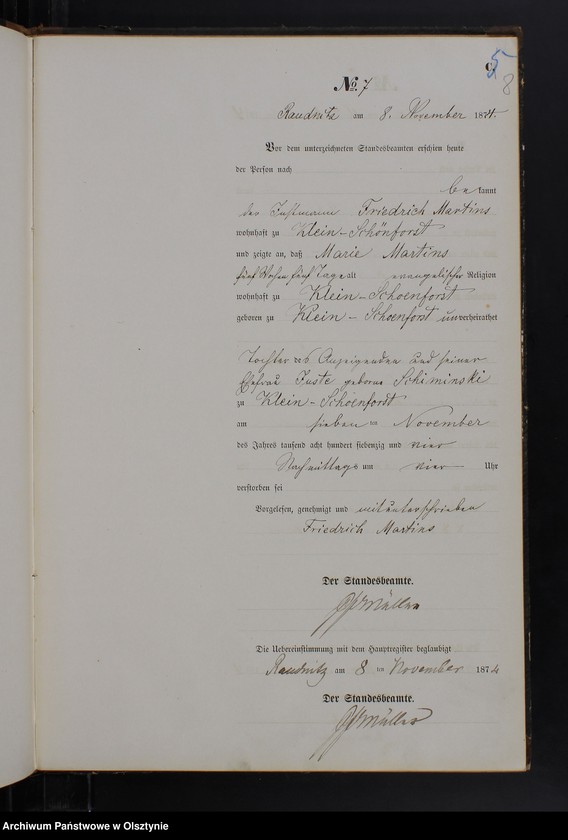 C.
5
8
No. 7
Raudnitz am 8. November 1874.
Vor dem unterzeichneten Standesbeamten erschien heute
der Person nach
bekannt
der Instmann Friedrich Martins
wohnhaft zu Klein-Schönforst
und zeigte an, daß Marie Martins
fünf Wochen fünf Tage alt evangelischer Religion
wohnhaft zu Klein-Schoenforst
geboren zu Klein-Schoenforst unverheirathet
Tochter des Anzeigenden und seiner
Ehefrau Juste geborne Schiminski
zu Klein-Schoenforst
am sieben ten November
des Jahres tausend acht hundert siebenzig und vier
Nachmittags um vier Uhr
verstorben sei
Vorgelesen, genehmigt und mitunterschrieben
Friedrich Martins
Der Standesbeamte.
Müller
Die Uebereinstimmung mit dem Hauptregister beglaubigt
Raudnitz am 8 ten November 1874
Der Standesbeamte.
Müller
Archiwum Państwowe w Olsztynie